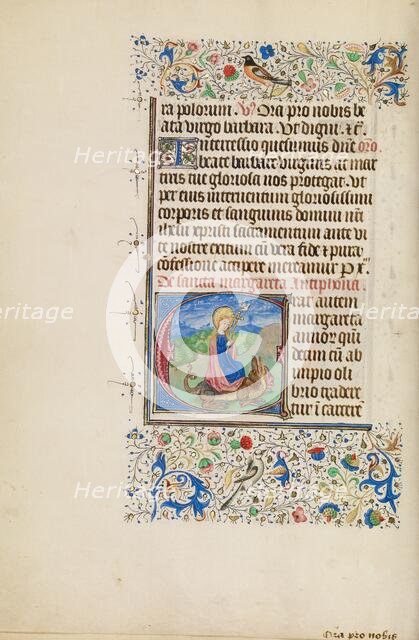 ra polorum. V Ora pro nobis be
ata virgo barbara. Ut digni. etc.
Intercessio quesumus dne oro.
beate barbare virginis et mar
tiris tue gloriosa nos protegat. ut
per eius interventum gloriosissimi
corporis et sanguinis domini nri
ihu xpristi sacramentum ante vi
te nostre exitum cu vera fide et pura
cofessione accipere mereamur P x
De sancta margareta Antiphona.
rat autem
margareta
annor qui
decim cu ab
impio oli
brio trade
tur i carcere
Ora pro nobis
Heritage
Heritage
Heritage
Heritage
Heritage
Heritage